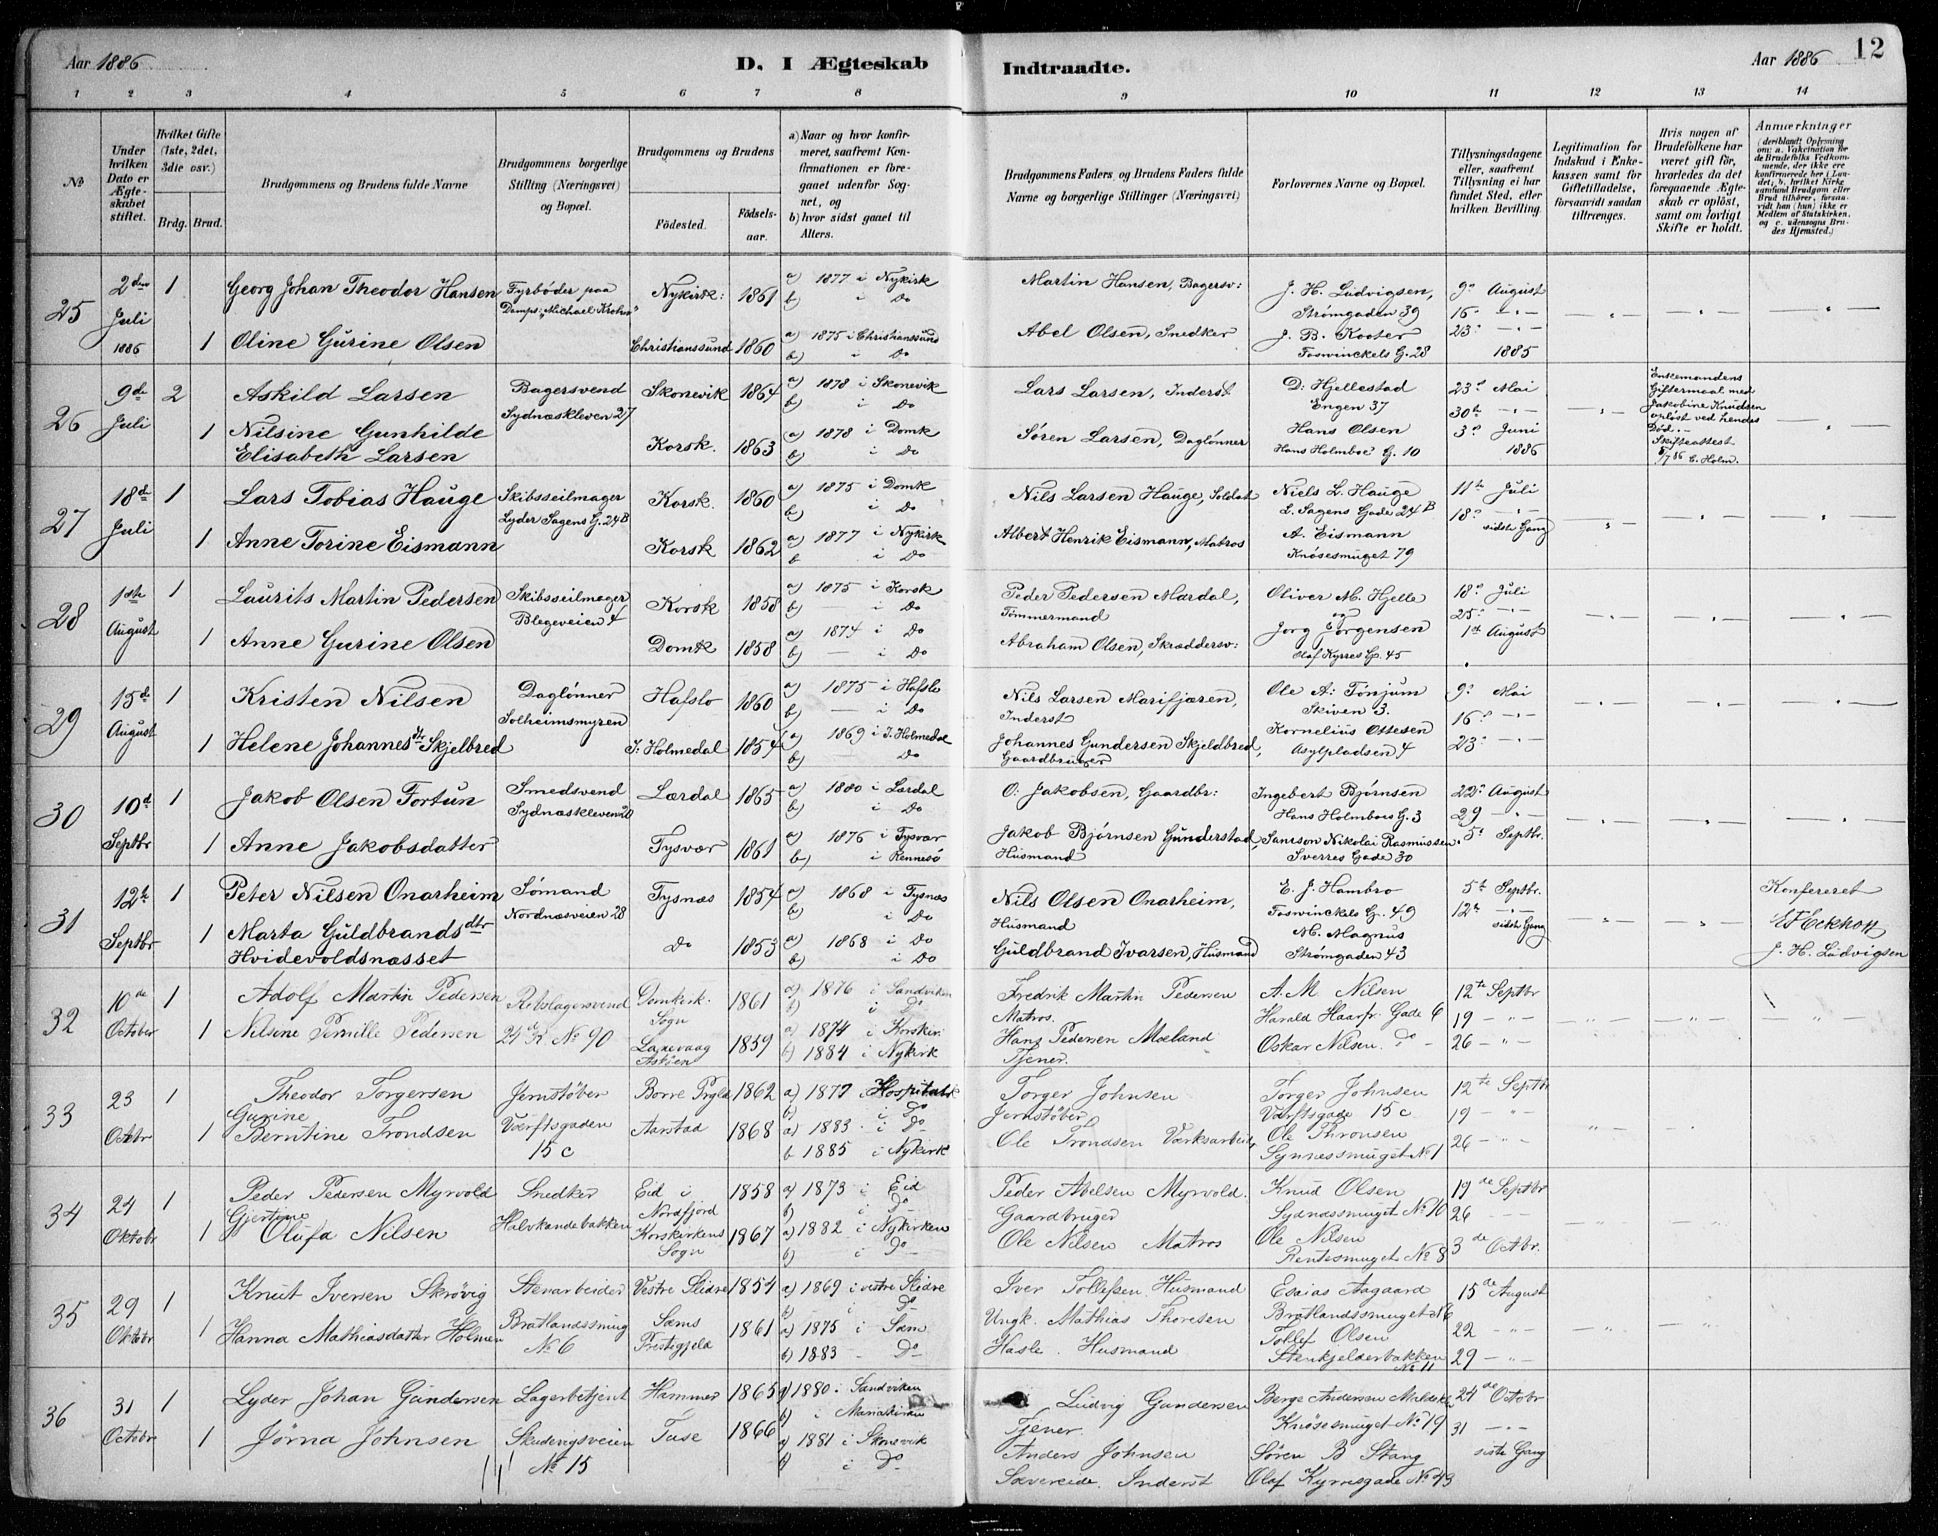 Aar 1886
D. I Ægteskab
Indtraadte.
Aar 1886
12
1 2 3 4 5 6 7 8 9 10 11 12 13 14
No
Under hvilken Dato er Ægteskabet stiftet.
Hvilket Gifte (1ste, 2det, 3die osv.)
Brdg. Brud.
Brudgommens og Brudens fulde Navne
Brudgommens borgerlige Stilling (Næringsvei) og Bopæl.
Brudgommens og Brudens
Födested.
Födselsaar.
a) Naar og hvor konfirmeret, saafremt Konfirmationen er foregaaet udenfor Sognet, og
b) hvor sidst gaaet til Alters.
Brudgommens Faders og Brudens Faders fulde Navne og borgerlige Stillinger (Næringsvei)
Forlovernes Navne og Bopæl.
Tillysningsdagene eller, saafremt Tillysning ei har fundet Sted, efter hvilken Bevilling.
Legitimation for Indskud i Enkekassen samt for Giftetilladelse, forsaavidt saadan tiltrænges.
Hvis nogen af Brudefolkene har været gift för, hvorledes da det foregaaende Ægteskab er oplöst, samt om lovligt Skifte er holdt.
Anmærkninger
(deriblandt Oplysning om: a. Vakcination for de Brudefolks Vedkommende, der ikke ere konfirmerede her i Landet; b. hvilket Kirkesamfund Brudgom eller Brud tilhörer, forsaavidt han (hun) ikke er Medlem af Statskirken, og c. udensogns Brudes Hjemsted.)
25
2den Juli 1886
1 Georg Johan Theodor Hansen
Fyrbøder paa Damps: "Michael Krohn"
Nykirk: 1861
a) 1877 i Nykirk
b) i Do
Martin Hansen, Bagersv:
J. H. Ludvigsen, Strømgaden 39
9de August
16 - " -
23 - " -
1885
1 Oline Gurine Olsen
Christianssund 1860
a) 1875 i Christianssund
b) i Do
Abel Olsen, Snedker
J. B. Kooter
Foswinckels G. 28
26
9de Juli
2 Askild Larsen
Bagersvend
Sydnæskleven 27
Skonevik 1864
a) 1878 i Skonevik
b) i Do
Lars Larsen, Inderst
D: Hjellestad
Engen 37
23d Mai
30te - " -
3d Juni
1886
Enkemandens Giftermaal med Jakobine Knudsen opløst ved hendes Død. -
Skifteattest
/7 86 C. Holm.
1 Nilsine Gunhilde Elisabeth Larsen
Korsk. 1863
a) 1878 i Domk
b) i Do
Søren Larsen, Daglønner
Hans Olsen
Hans Holmboe G. 10
27
18de Juli
1 Lars Tobias Hauge
Skibsseilmager
Lyder Sagens G. 24B
Korsk. 1860
a) 1875 i Domk
b) i Do
Nils Larsen Hauge, Soldat
Niels L. Hauge
L. Sagens Gade 24B
11te Juli
18de - " -
sidste Gang
1 Anne Torine Eismann
Korsk 1862
a) 1877 i Nykirk
b i Do
Albert Henrik Eismann, Matros
A. Eismann
Knøsesmuget 79
28
1ste August
1 Laurits Martin Pedersen
Skibsseilmager
Blegeveien 4
Korsk 1858
a) 1875 i Korsk
b) — i Do
Peder Pedersen Mardal, Tømmermand
Oliver M. Hjelle
og
18de Juli
25 - " -
1st August
1 Anne Gurine Olsen
Domk 1858
a) 1874 i Do
b) — i Do
Abraham Olsen, Skræddersv:
Jørg Jørgensen
Olaf Kyrres G. 45
29
15de August
1 Kristen Nilsen
Daglønner
Solheimsmyren
Hafslo 1860
a) 1875 i Hafslo
b) — i Do
Nils Larsen Marifjæren, Inderst
Ole A: Tønjum
Skiven 3.
9de Mai
16 - " -
23 - " -
1 Helene Johannesdtr Skjelbred
I: Holmedal 1854
a) 1869 i I. Holmedal
b) — Do
Johannes Gundersen Skjeldbred, Gaardbruger
Kornelius Ottesen
Asylpladsen 4
30
10d Septbr
1 Jakob Olsen Fortun
Smedsvend
Sydnæskleven 20
Lærdal 1865
a) 1880 i Lærdal
b) i Do
O: Jakobsen, Gaardbr:
Ingebert Bjørnsen
Hans Holmboes G. 3
22de August
29 - " -
5te Septbr.
1 Anne Jakobsdatter
Tysvær 1861
a) 1876 i Tysvær
b) i Rennesø
Jakob Bjørnsen Gunderstad, Husmand
Samson Nikolai Rasmussen.
Sverres Gade 30
31
12te Septbr
1 Peter Nilsen Onarheim
Sømand
Nordnæsveien 28
Tysnæs 1854
a) 1868 i Tysnæs
b) i Do
Nils Olsen Onarheim, Husmand
E. J. Hambro
Foswinckels G. 49
5te Septbr.
12te - " -
sidste Gang
Konfereret
J. H. Ludvigsen
1 Marta Guldbrandsdtr Hvidevoldsnæsset
Do 1853
a) 1868 i Do
b) i Do
Guldbrand Ivarsen, Husmand
M. Magnus
Strømgaden 43
32
10de October
1 Adolf Martin Pedersen
Rebslagersvend
24de R. No 90
Domkirk. Sogn 1861
a) 1876 i Sandviken
b) i Do
Fredrik Martin Pedersen
Matros.
A. M. Nilsen
Harald Haarfr. Gade 6
12te Septbr
19 - " -
26 - " -
1 Nilsine Pernille Pedersen
Laxevaag Askøen 1859
a) 1874 i Korskir.
b) 1884 i Nykirk
Hans Pedersen Moeland
Tjener.
Oskar Nilsen. Do -
33
23 Octbr
1 Theodor Torgersen
Jernstøber
Værftsgaden 15 c
Borre Prgld 1862
a) 1877 i Hospitalsk
b) i Do
Torger Johnsen
Jernstøber
Torger Johnsen
Værftsgade 15 c
12te Septbr
19 - " -
26 - " -
1 Gurine Berntine Trondsen
Aarstad 1868
a) 1883 i Do
b 1885 i Nykirk
Ole Trondsen Værksarbeid.
Ole Thronsen
Synnæssmuget No 1
34
24 Oktobr
1 Peder Pedersen Myrvold
Snedker
Halvkandebakken
Eid i Nordfjord 1858
a) 1873 i Eid
b) i Do
Peder Abelsen Myrvold.
Gaardbruger
Knud Olsen
Sydnæssmuget No 10
19de Septbr
26 - " -
3de Octbr.
1 Gjertine Olufa Nilsen
Korskirkens Sogn 1867
a) 1882 i Nykirken
b) — Do
Ole Nilsen Matros
Ole Nilsen
Rentesmuget No 8
35
29 Oktobr
1 Knut Iversen Skrøvig
Stenarbeider
Bratlandssmug No 6
Vestre Slidre 1854
a) 1869 i vestre Slidre
b) i Do
Iver Tollefsen Husmand
Esaias Aagaard
Bratlandssmuget No 6
15de August
22 - " -
29 - " -
1 Hanna Mathiasdatter Holmen
Sæms Prestigjeld 1861
a) 1875 i Sæm
b) 1883 - Do
Ungk. Mathias Thoresen
Hasle. Husmand
Tollef Olsen
Stenkjelderbakken No 11
36
31 Octobr
1 Lyder Johan Gundersen
Lagerbetjent
Skuteviksveien No 15
Hammer 1865
a) 1880 i Sandviken
b) i Mariakirken
Ludvig Gundersen
Tjener.
Berge Andersen
Knøsesmuget No 19
24de Octobr
31 - " -
sidste Gang
1 Jørna Johnsen
1866
a) 1881 i Skonevik
b) i Do
Anders Johnsen
Sævereide. Inderst
Søren B Stang
Olaf Kyrresgade No 43